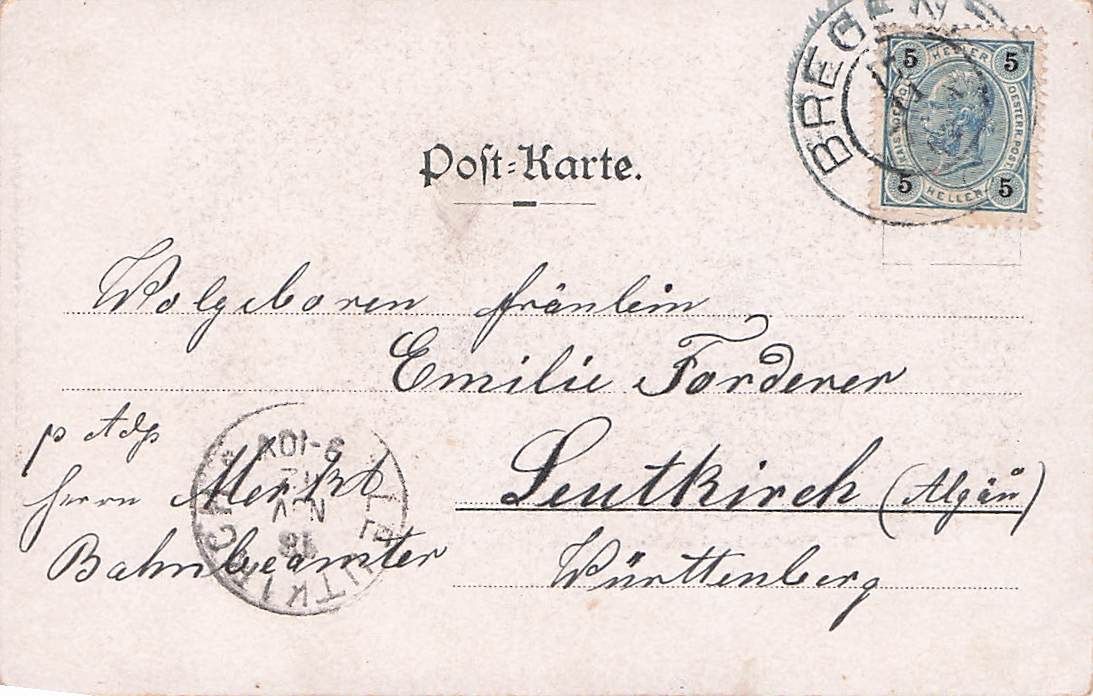 BREGEN
5 HELLER 5
OESTERR. POST
5 HELLER 5
Post-Karte.
Wolgeboren fräulein
Emilie Forderer
p Adr
herrn Merkt
Leutkirch (Algäu)
Bahnbeamter
Württenberg
LEUTKIRCH
18
NOV
9-10V